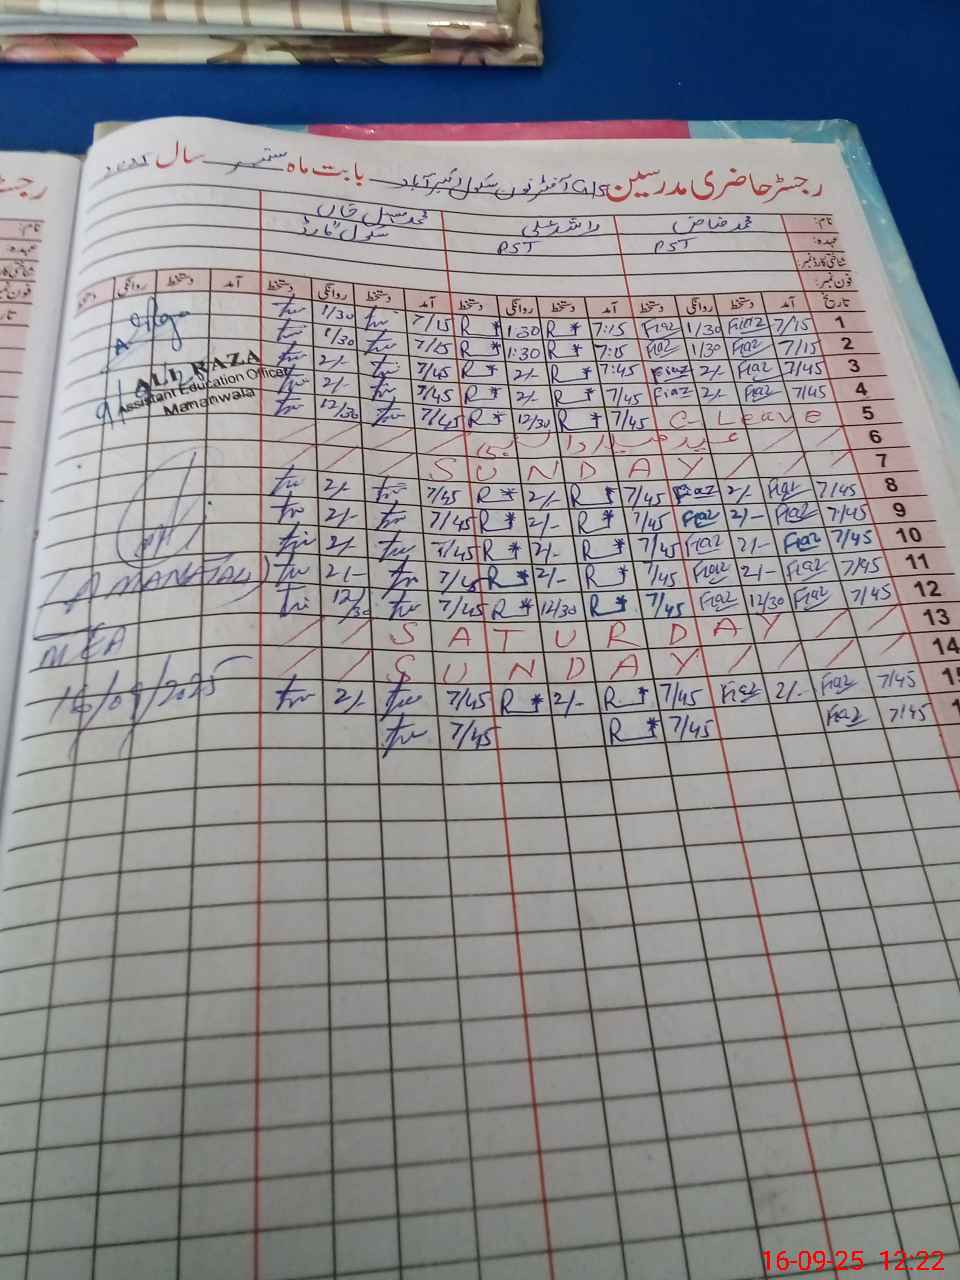 رجسٹر حاضری مدرسین GPS آفٹرنون سکول بابت ماہ ستمبر سال 2025
نام: محمد فیاض راشد علی محمد سہیل خان
عہدہ: PST PST سکول گارڈ
شناختی کارڈ نمبر:
فون نمبر:
تاریخ آمد دستخط روانگی دستخط آمد دستخط روانگی دستخط آمد دستخط روانگی دستخط آمد دستخط روانگی
1 7/15 Fiaz 1/30 Fiaz 7:15 R 1:30 R 7/15 1/30
2 7/15 Fiaz 1/30 Fiaz 7:15 R 1:30 R 7/15 1/30
3 7/45 Fiaz 2/- Fiaz 7:45 R 2/- R 7/45 2/-
4 7/45 Fiaz 2/- Fiaz 7/45 R 2/- R 7/45 2/-
5 C-Leave 7/45 R 12/30 R 7/45 12/30
6
7 SUNDAY
8 7/45 Fiaz 2/- Fiaz 7/45 R 2/- R 7/45 2/-
9 7/45 Fiaz 2/- Fiaz 7/45 R 2/- R 7/45 2/-
10 7/45 Fiaz 2/- Fiaz 7/45 R 2/- R 7/45 2/-
11 7/45 Fiaz 2/- Fiaz 7/45 R 2/- R 7/45 2/-
12 7/45 Fiaz 12/30 Fiaz 7/45 R 12/30 R 7/45 12/30
13 SATURDAY
14 SUNDAY
15 7/45 Fiaz 2/- Fiaz 7/45 R 2/- R 7/45 2/-
7/45 Fiaz 7/45 R 7/45
ALI RAZA
Assistant Education Officer
Mananwala
MEA
16/09/2025
16-09-25 12:22